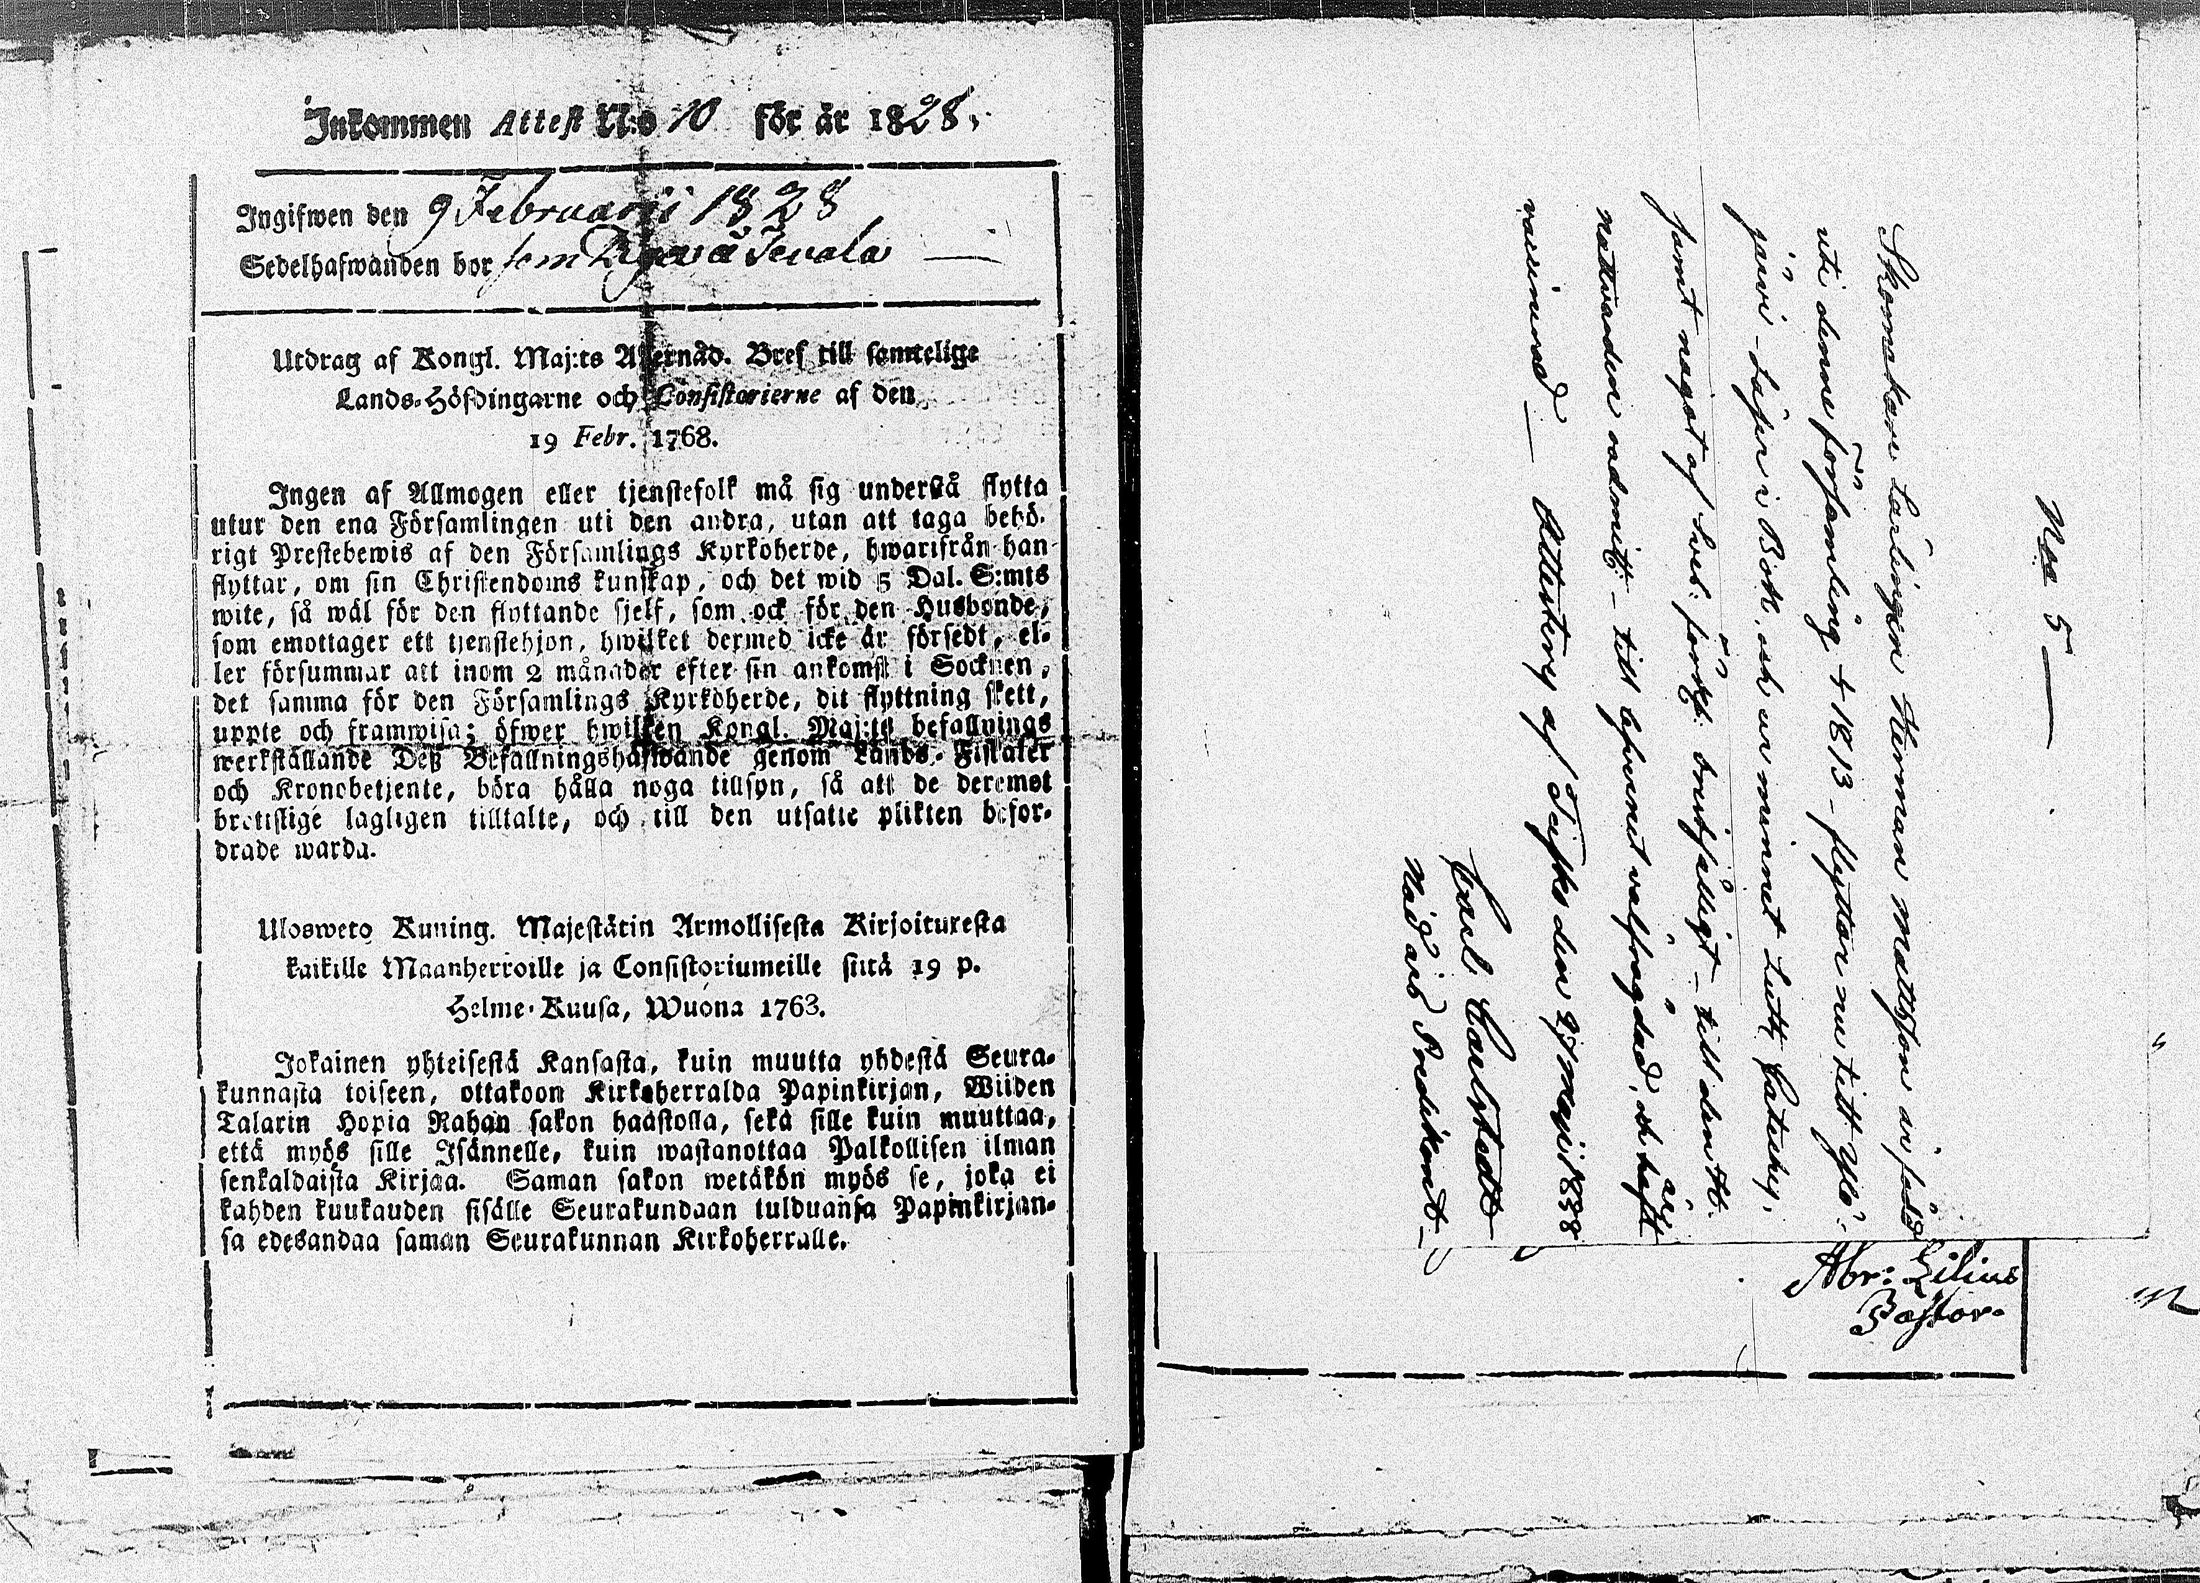 Inkommen Attest N:o 10 för år 1828.
Ingifwen den 9 Februarii 1828
Sedelhafwanden bor som Dräng å Jevala
Utdrag af Kongl. Maj:ts Allernåd. Bref till samtelige
Lands-Höfdingarne och Consistorierne af den
19 Febr. 1768.
Ingen af Allmogen eller tjenstefolk må sig understå flytta
utur den ena Församlingen uti den andra, utan att taga behö-
rigt Prestebewis af den Församlings Kyrkoherde, hwarifrån han
flyttar, om sin Christendoms kunskap, och det wid 5 Dal. S:mts
wite, så wäl för den flyttande sjelf, som ock för den Husbonde,
som emottager ett tjenstehjon, hwilket dermed icke är försedt, el-
ler försummar att inom 2 månader efter sin ankomst i Socknen,
det samma för den Församlings Kyrkoherde, dit flyttning skett,
uppte och framwisa; öfwer hwilken Kongl. Maj:ts befallnings
werkställande Deß Befallningshafwande genom Lands-Fiskaler
och Kronobetjente, böra hålla noga tillsyn, så att de deremot
brottslige lagligen tilltalte, och till den utsatte plikten befor-
drade warda.
Ulosweto Kuning. Majestätin Armollisesta Kirjoituxesta
kaikille Maanherroille ja Consistoriumeille siitä 19 p.
Helme-Kuusa, Wuona 1763.
Jokainen yhteisestä Kansasta, kuin muutta yhdestä Seura-
kunnasta toiseen, ottakoon Kirkoherralda Papinkirjan, Wiiden
Talarin Hopia Rahan sakon haastolla, sekä sille kuin muuttaa,
että myös sille Isännelle, kuin wastanottaa Palkollisen ilman
senkaldaista Kirjaa. Saman sakon wetäkön myös se, joka ei
kahden kuukauden sisälle Seurakundaan tulduansa Papinkirjan-
sa edesandaa saman Seurakunnan Kirkoherralle.
No 5
Skomakare Lärlingen Herman Mattsson är född
uti denne församling 1813 flyttar nu till Ylö-
järvi Läser i Bok, och ur minnet Luth. Cateches.
jemt något af förkl. till den H.
nattvarden admitt till och haft
Attesterg af Teisko den 27 Maji 1838
Carl Carlstedt
Nåd års Predikant
Abr: Lilius
Pastor.